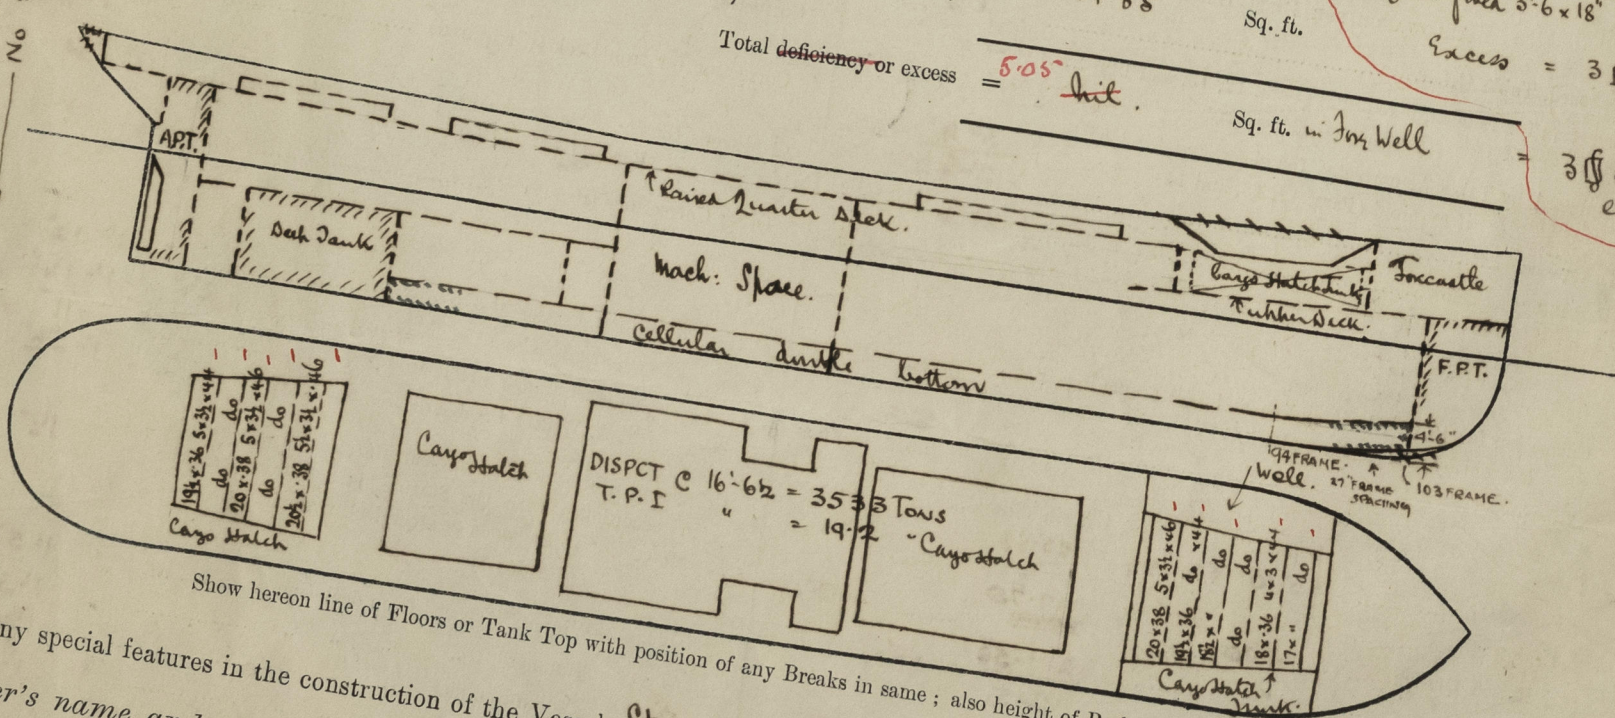 No
Sq. ft.
5·6 x 18"
Excess = 3
Total deficiency or excess = 5·05 Nil.
Sq. ft. in Forw Well = 3
A.P.T.
Deep Tank
Raised Quarter Deck.
Mach: Space.
Cellular double bottom
Cargo Hatch Trunk
Upper Deck.
Forecastle
F.P.T.
4'-6"
94 FRAME.
27" FRAME SPACING
103 FRAME.
Well.
19½ x ·36 5 x 3½ x ·44
do do
20 x ·38 5 x 3½ x ·46
do do
20½ x ·38 5½ x 3½ x ·46
Cargo Hatch
Cargo Hatch
DISPCT @ 16'-6½ = 3533 TONS
T.P.I " = 19·2 "
Cargo Hatch
20 x 38 5 x 3½ x 46
19½ x 36 do x 44
18½ x " do
do do
18 x ·36 4 x 3 x 44
17 x " do
Cargo Hatch
Trunk.
Show hereon line of Floors or Tank Top with position of any Breaks in same ; also height of
ny special features in the construction of the
er's name and